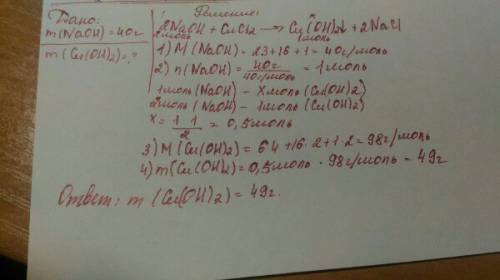 Дано:
m(NaOH) = 40г
m(Cu(OH)2) = ?
Решение:
2NaOH + CuCl2 → Cu(OH)2↓ + 2NaCl
2моль
x
1моль
1) M(NaOH) = 23+16+1 = 40г/моль
2) n(NaOH) = 40г / 40г/моль = 1моль
1моль(NaOH) - Xмоль(Cu(OH)2)
2моль(NaOH) - 1моль(Cu(OH)2)
X = 1·1 / 2 = 0,5моль
3) M(Cu(OH)2) = 64+16·2+1·2 = 98г/моль
4) m(Cu(OH)2) = 0,5моль · 98г/моль = 49г
Ответ: m(Cu(OH)2) = 49г.